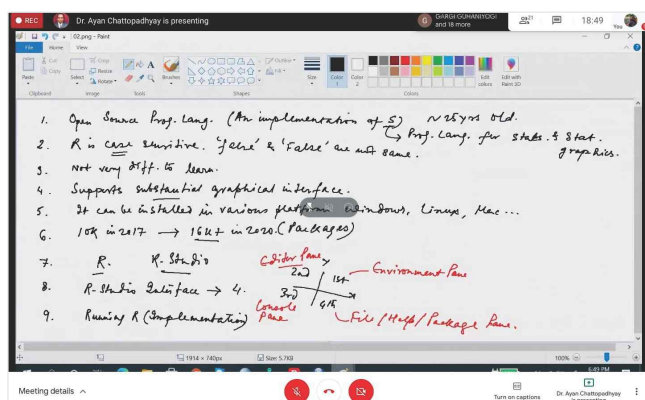 REC
Dr. Ayan Chattopadhyay is presenting
G GARGI GUHANIYOGI
and 18 more
21
18:49
You
02.png - Paint
File Home View
Paste
Cut
Copy
Clipboard
Select
Crop
Resize
Rotate
Image
A
Tools
Brushes
Outline
Fill
Shapes
Size
Color 1
Color 2
Edit colors
Edit with Paint 3D
Colors
1. Open Source Prog. Lang. (An implementation of S) ~ 25 yrs old.
Prog. Lang. for stats. & Stat. graphics.
2. R is case sensitive. 'false' & 'False' are not same.
3. Not very diff. to learn.
4. Supports substantial graphical interface.
5. It can be installed in various platform windows, Linux, Mac...
6. 10K in 2017 → 16K+ in 2020. (Packages)
7. R. R-Studio
Editor Pane
2nd 1st Environment Pane
8. R-Studio Interface → 4.
3rd 4th
Console Pane
File/Help/Package Pane.
9. Running R (Implementation)
1914 × 740px
Size: 5.7KB
100%
6:49 PM
Meeting details
Turn on captions
Dr. Ayan Chattopadhyay
is presenting